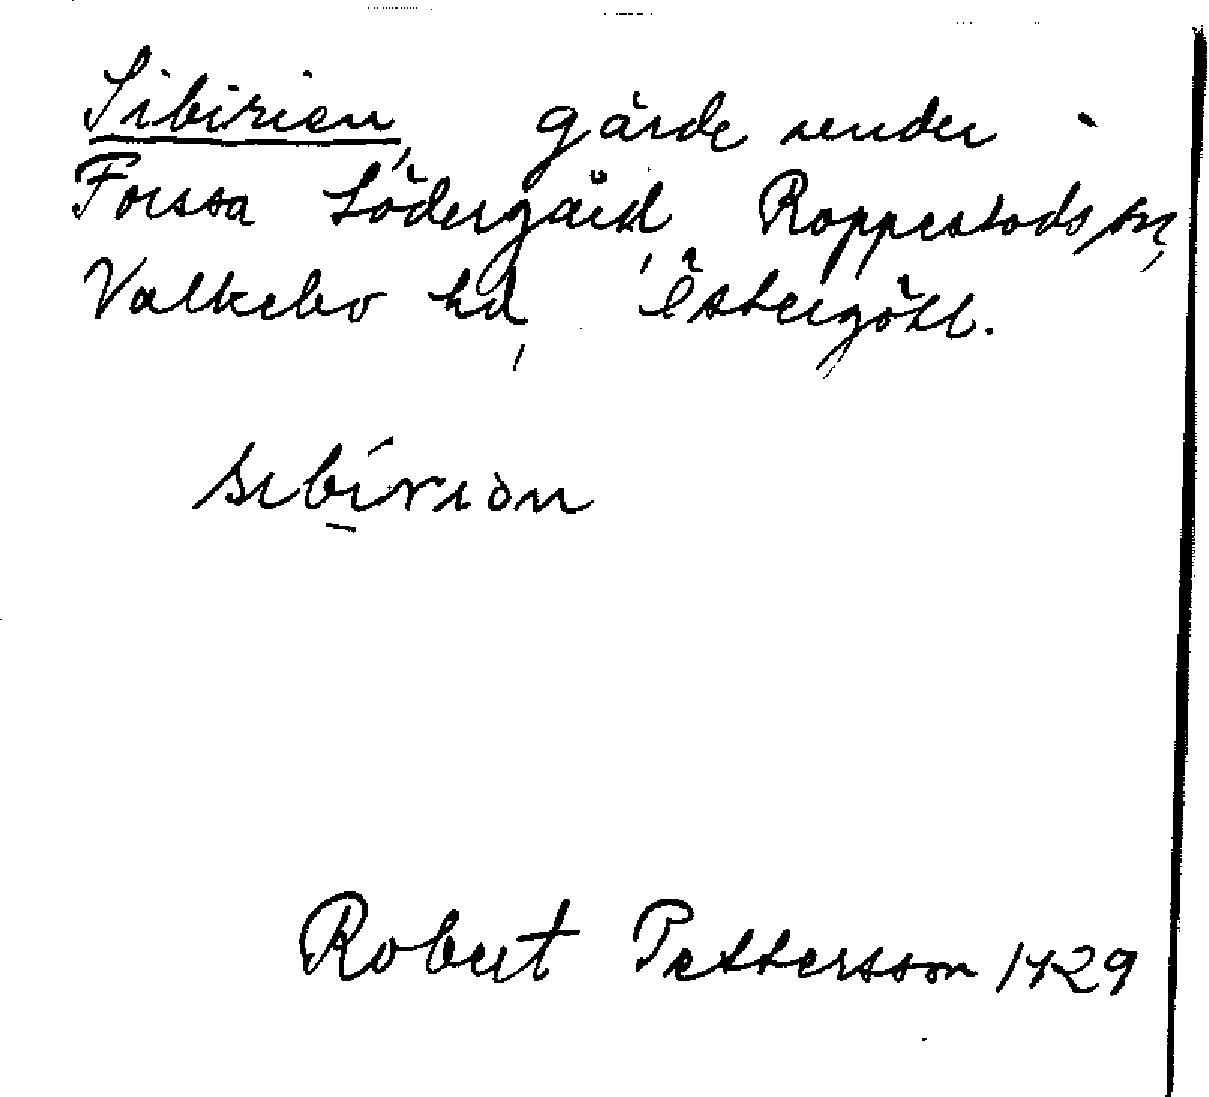 Sibirien, gärde under
Forssa Södergård, Rappestads sn,
Valkebo hd, Östergötl.
sibíriǝn
Robert Pettersson 1929